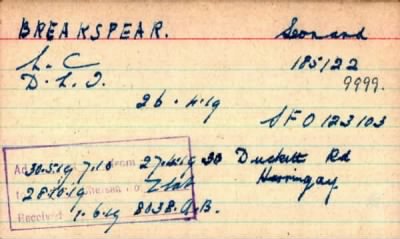 BREAKSPEAR. Leonard
L. C 185122
D. L. I. 9999.
26.4.19
SFO 123103
30.5.19 7.10 from 27.4.19 30 Duckett Rd
28.10.19 Harringay
Received 1.6.19 8038.A.B.